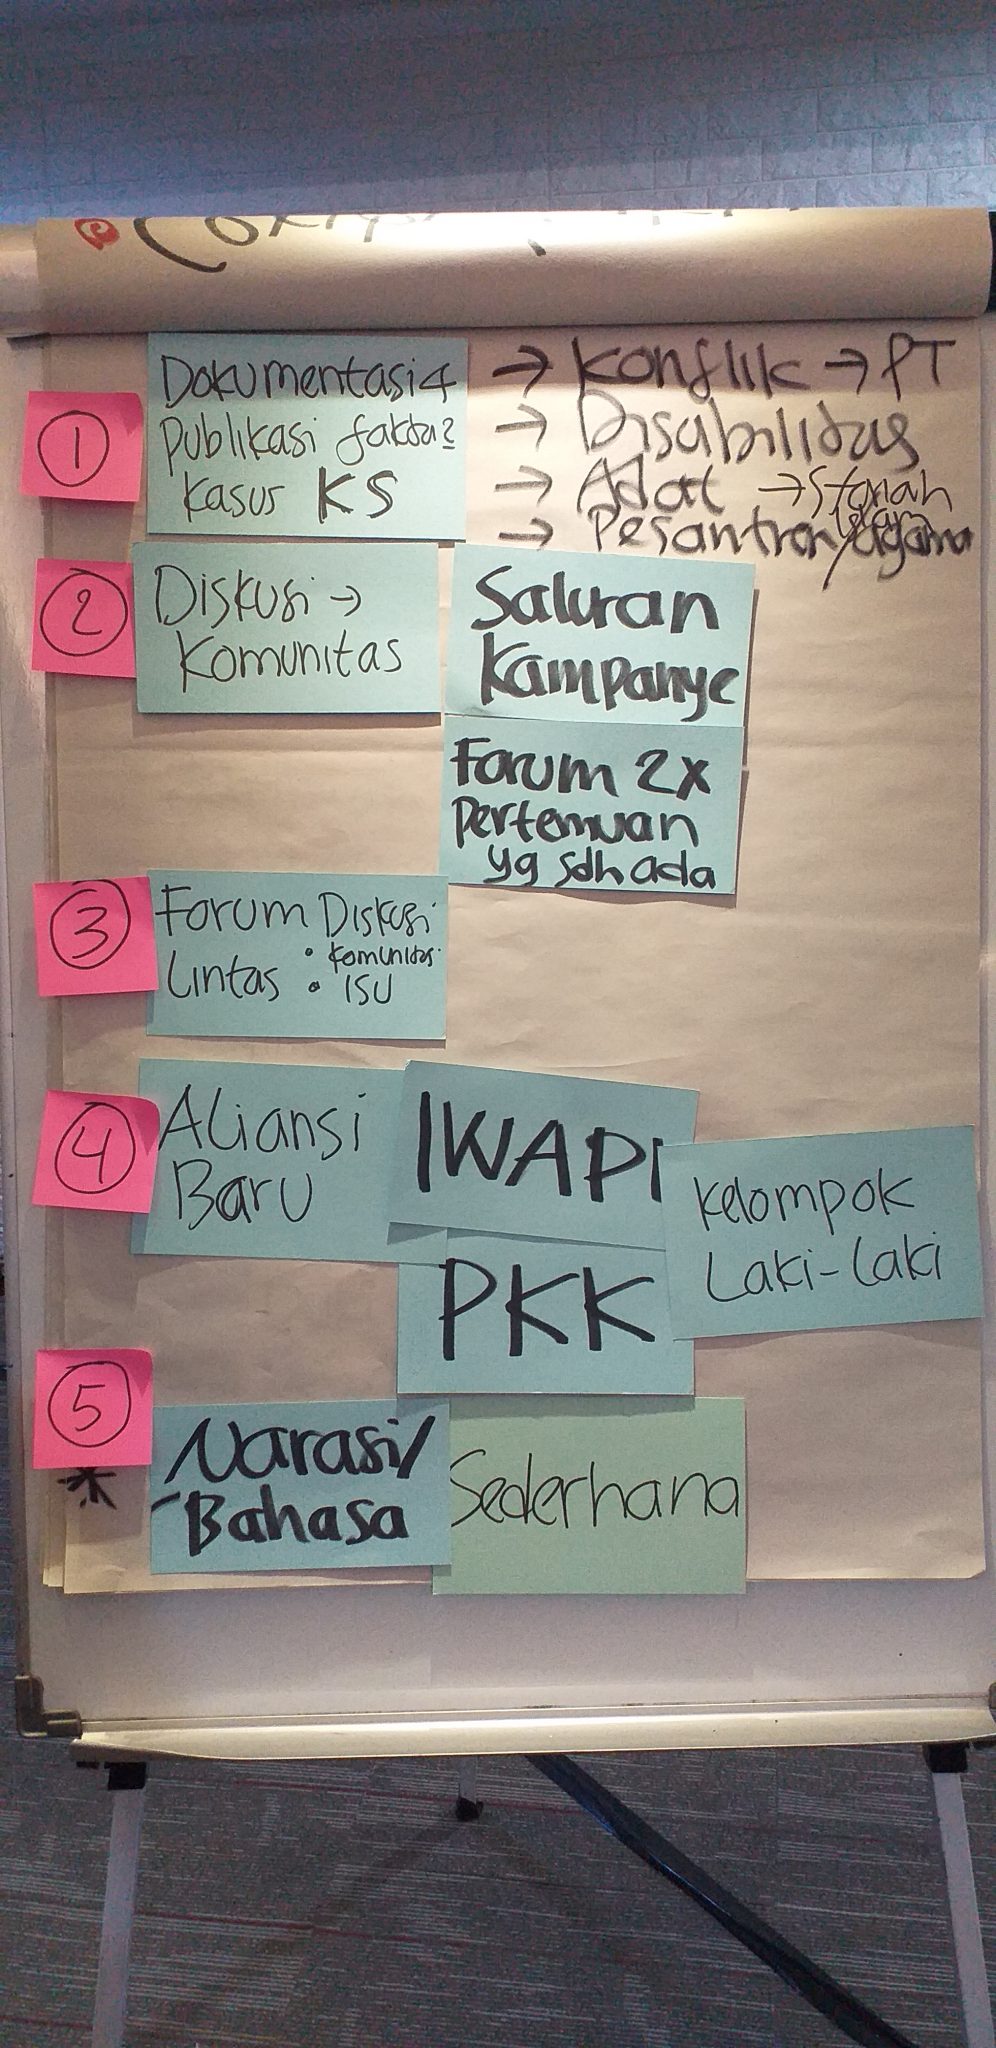 1
Dokumentasi &
publikasi fakta2
kasus KS
→ Konflik → PT
→ Disabilitas
→ Adat →
→ Pesantren/agama
2
Diskusi →
Komunitas
Saluran
Kampanye
Forum 2x
Pertemuan
yg sdh ada
3
Forum Diskusi
Lintas • Komunitas
• ISU
4
Aliansi
Baru
IWAPI
PKK
Kelompok
Laki-Laki
5
*
Narasi/
Bahasa
Sederhana